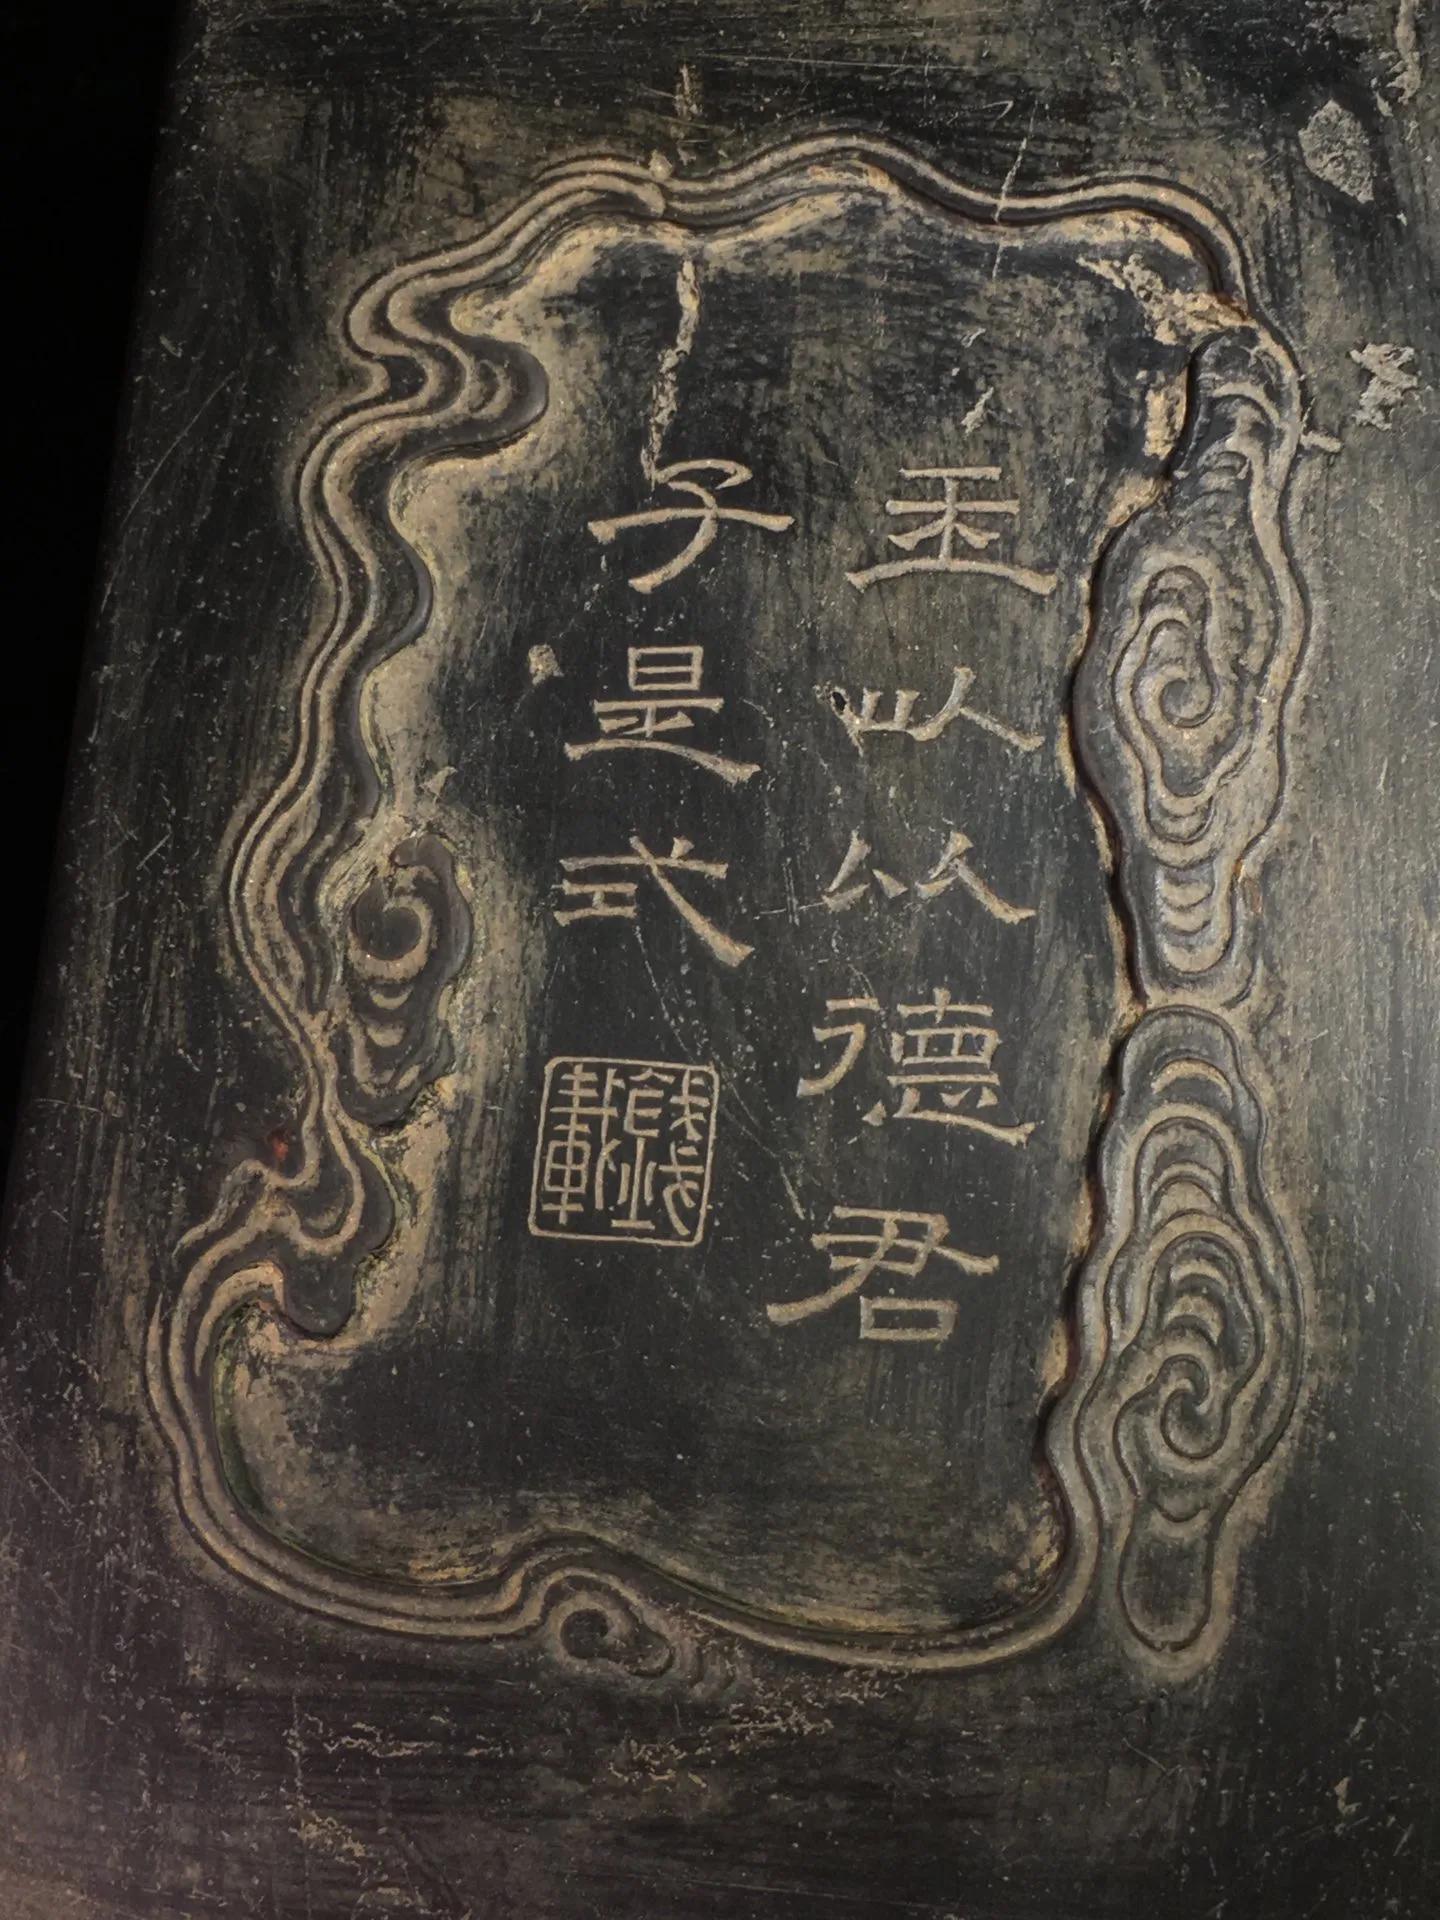 玉以从德君
子是式
錢載